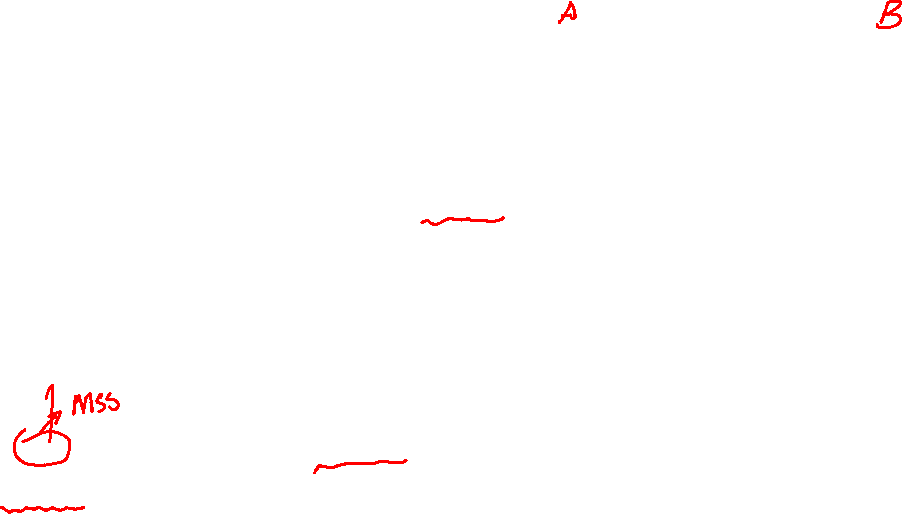 A B
MSS